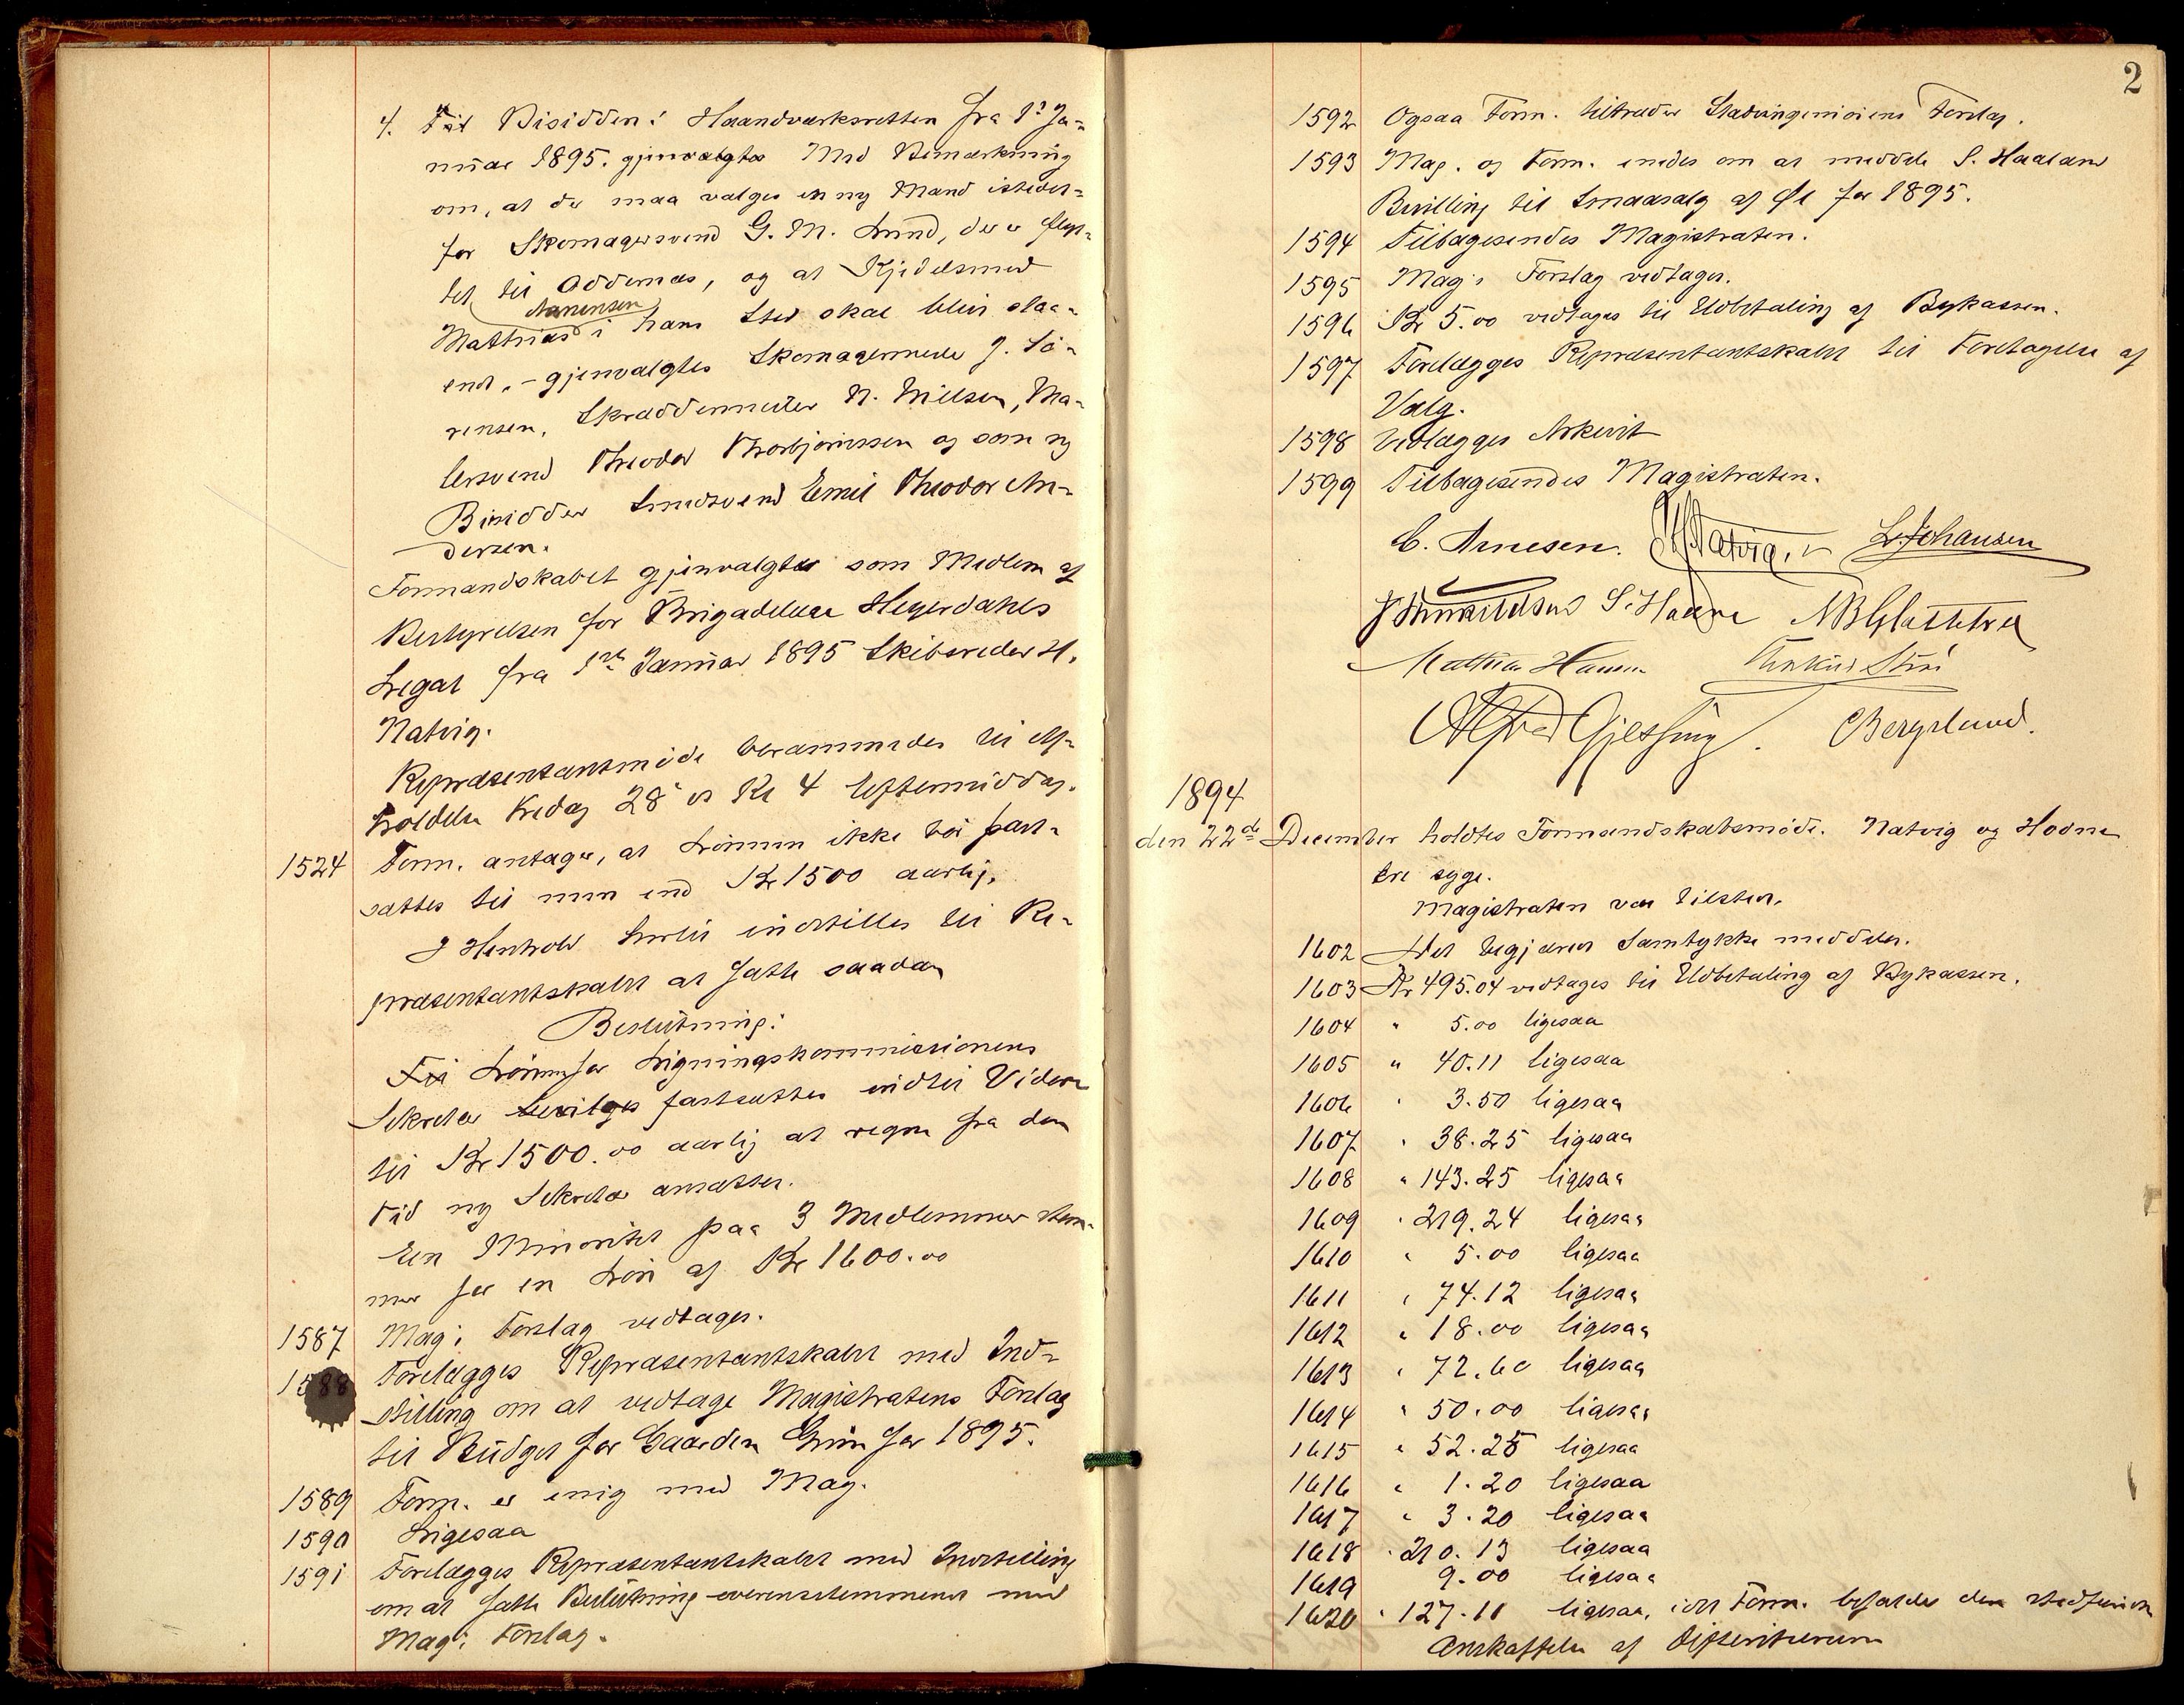 4. Til Bisidder i Haandværksretten fra 1ste Ja-
nuar 1895 gjenvalgtes Med Bemærkning
om, at der maa vælges en ny Mand istedet-
for Skomagersvend G. M. Lund, der er flyt-
tet til Oddernæs, og at Kjedelsmed
Mathias Aanensen i hans Sted skal blive staa-
ende, - gjenvalgtes Skomagermester J. Sø-
rensen, Skræddermester N. Nielsen, Ma-
lersvend Theodor Thorbjørnsen og som ny
Bisidder Smedsvend Emil Theodor An-
dersen.
Formandskabet gjenvalgte som Medlem af
Bestyrelsen for Brigadelæge Heyerdahls
Legat fra 1ste Januar 1895 Skibsreder H.
Natvig.
Repræsentantmøde berammedes til Af-
holdelse Fredag 28de ds Kl 4 Eftermiddag.
1524 Form. antager, at Lønnen ikke bør fast-
sættes til mere end Kr 1500 aarlig.
I Henhold hertil indstilles til Re-
præsentantskabet at fatte saadan
Beslutning:
Lønnen for Ligningskommissionens
Sekretær bevilges fastsættes indtil Videre
til Kr 1500.00 aarlig at regne fra den
Tid ny Sekretær ansættes.
En Minoritet paa 3 Medlemmer stem-
mer for en Løn af Kr 1600.00
1587 Mag's Forslag vedtages.
1588 Forelægges Repræsentantskabet med Ind-
stilling om at vedtage Magistratens Forslag
til Budget for Gaarden Grim for 1895.
1589 Form. er enig med Mag.
1590 Ligesaa
1591 Forelægges Repræsentantskabet med Indstilling
om at fatte Beslutning overensstemmende med
Mag's Forslag.
2
1592 Ogsaa Form. tiltræder Stadsingeniørens Forslag.
1593 Mag. og Form. enedes om at meddele S. Haaland
Bevilling til Smaasalg af Øl for 1895.
1594 Tilbagesendes Magistraten.
1595 Mag's Forslag vedtages.
1596 Kr 5.00 vedtages til Udbetaling af Bykassen.
1597 Forelægges Repræsentantskabet til Foretagelse af
Valg.
1598 Vedlægges Arkivet
1599 Tilbagesendes Magistraten.
C. Arnesen. H Natvig. L. Johansen
S. Hodne
Mathias Hansen
Alfred Gjessing. Bergslund.
1894
den 22de December holdtes Formandskabsmøde. Natvig og Hodne
ere syge.
Magistraten var tilstede.
1602 Det begjærede Samtykke meddeles.
1603 Kr 495.04 vedtages til Udbetaling af Bykassen.
1604 " 5.00 ligesaa
1605 " 40.11 ligesaa
1606 " 3.50 ligesaa
1607 " 38.25 ligesaa
1608 " 143.25 ligesaa
1609 " 219.24 ligesaa
1610 " 5.00 ligesaa
1611 " 74.12 ligesaa
1612 " 18.00 ligesaa
1613 " 72.60 ligesaa
1614 " 50.00 ligesaa
1615 " 52.25 ligesaa
1616 " 1.20 ligesaa
1617 " 3.20 ligesaa
1618 " 210.13 ligesaa
1619 9.00 ligesaa
1620 " 127.11 ligesaa, idet Form. bifalder den stedfundne
Anskaffelse af Difteritserum